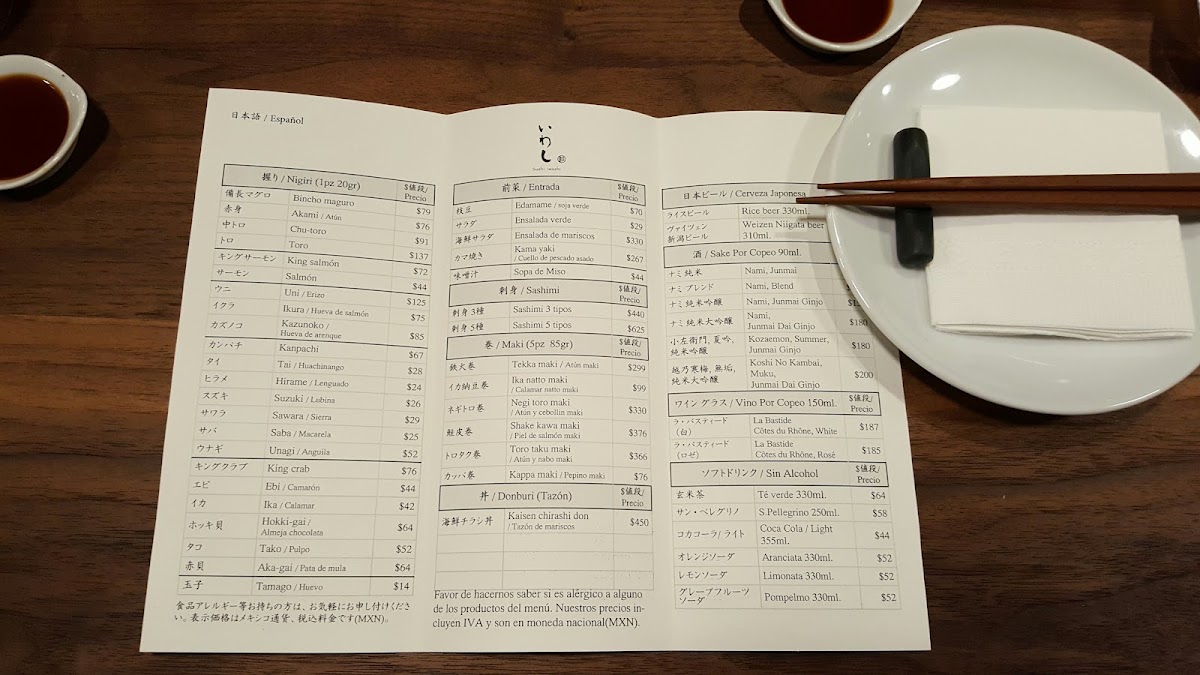 日本語 / Español
握り / Nigiri (1pz 20gr) $値段/ Precio
備長マグロ Bincho maguro $79
赤身 Akami / Atún $76
中トロ Chu-toro $91
トロ Toro $137
キングサーモン King salmón $72
サーモン Salmón $44
ウニ Uni / Erizo $125
イクラ Ikura / Hueva de salmón $75
カズノコ Kazunoko / Hueva de arenque $85
カンパチ Kanpachi $67
タイ Tai / Huachinango $28
ヒラメ Hirame / Lenguado $24
スズキ Suzuki / Lubina $26
サワラ Sawara / Sierra $29
サバ Saba / Macarela $25
ウナギ Unagi / Anguila $52
キングクラブ King crab $76
エビ Ebi / Camarón $44
イカ Ika / Calamar $42
ホッキ貝 Hokki-gai / Almeja chocolata $64
タコ Tako / Pulpo $52
赤貝 Aka-gai / Pata de mula $64
玉子 Tamago / Huevo $14
食品アレルギー等お持ちの方は、お気軽にお申し付けくださ
い。表示価格はメキシコ通貨、税込料金です(MXN)。
いわし
Sushi Iwashi
前菜 / Entrada $値段/ Precio
枝豆 Edamame / soja verde $70
サラダ Ensalada verde $29
海鮮サラダ Ensalada de mariscos $330
カマ焼き Kama yaki / Cuello de pescado asado $267
味噌汁 Sopa de Miso $44
刺身 / Sashimi $値段/ Precio
刺身 3種 Sashimi 3 tipos $440
刺身 5種 Sashimi 5 tipos $625
巻 / Maki (5pz 85gr) $値段/ Precio
鉄火巻 Tekka maki / Atún maki $299
イカ納豆巻 Ika natto maki / Calamar natto maki $99
ネギトロ巻 Negi toro maki / Atún y cebollín maki $330
鮭皮巻 Shake kawa maki / Piel de salmón maki $376
トロタク巻 Toro taku maki / Atún y nabo maki $366
カッパ巻 Kappa maki / Pepino maki $76
丼 / Donburi (Tazón) $値段/ Precio
海鮮チラシ丼 Kaisen chirashi don / Tazón de mariscos $450
Favor de hacernos saber si es alérgico a alguno
de los productos del menú. Nuestros precios in-
cluyen IVA y son en moneda nacional(MXN).
日本ビール / Cerveza Japonesa
ライスビール Rice beer 330ml.
ヴァイツェン 新潟ビール Weizen Niigata beer 310ml.
酒 / Sake Por Copeo 90ml.
ナミ純米 Nami, Junmai
ナミブレンド Nami, Blend
ナミ純米吟醸 Nami, Junmai Ginjo
ナミ純米大吟醸 Nami, Junmai Dai Ginjo $180
小左衛門, 夏吟, 純米吟醸 Kozaemon, Summer, Junmai Ginjo $180
越乃寒梅, 無垢, 純米大吟醸 Koshi No Kambai, Muku, Junmai Dai Ginjo $200
ワイングラス / Vino Por Copeo 150ml. $値段/ Precio
ラ・バスティード (白) La Bastide Côtes du Rhône, White $187
ラ・バスティード (ロゼ) La Bastide Côtes du Rhône, Rosé $185
ソフトドリンク / Sin Alcohol $値段/ Precio
玄米茶 Té verde 330ml. $64
サン・ペレグリノ S.Pellegrino 250ml. $58
コカコーラ/ ライト Coca Cola / Light 355ml. $44
オレンジソーダ Aranciata 330ml. $52
レモンソーダ Limonata 330ml. $52
グレープフルーツ ソーダ Pompelmo 330ml. $52